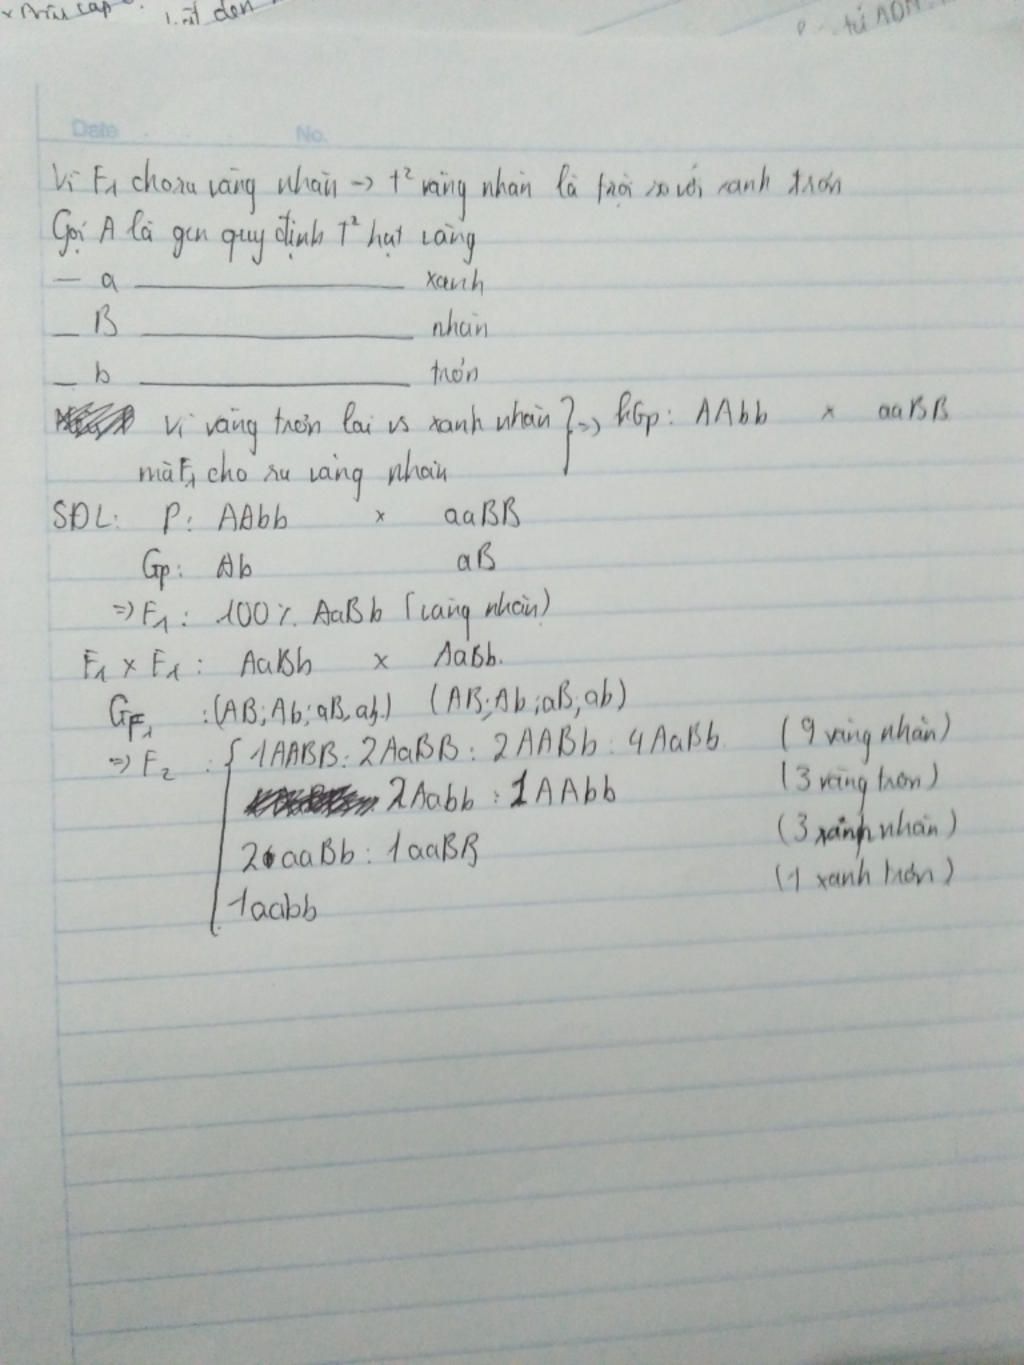 lất đen
tử ADN
Date No.
Vì F1 cho ra vàng nhăn -> t² vàng nhăn là trội so với xanh trơn
Gọi A là gen quy định T² hạt vàng
— a ———— xanh
— B ———— nhăn
— b ———— trơn
Vì vàng trơn lai vs xanh nhăn } => kGp: AAbb x aaBB
mà F1 cho ra vàng nhăn
SĐL: P: AAbb x aaBB
Gp: Ab aB
=> F1: 100% AaBb (vàng nhăn)
F1 x F1: AaBb x AaBb.
GF1 : (AB; Ab; aB, ab) (AB; Ab; aB; ab)
=> F2 : { 1AABB : 2AaBB : 2AABb : 4AaBb (9 vàng nhăn)
2Aabb : 1AAbb (3 vàng trơn)
2aaBb : 1aaBB (3 xanh nhăn)
1aabb (1 xanh trơn)